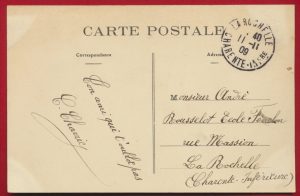 CARTE POSTALE
Correspondance
Adresse
LA ROCHELLE
11 40
11-11
09
CHARENTE-INFRE
Ton ami qui t'oublie pas
Monsieur André
Rousselot Ecole
rue Massion
La Rochelle
Charente-Inférieure